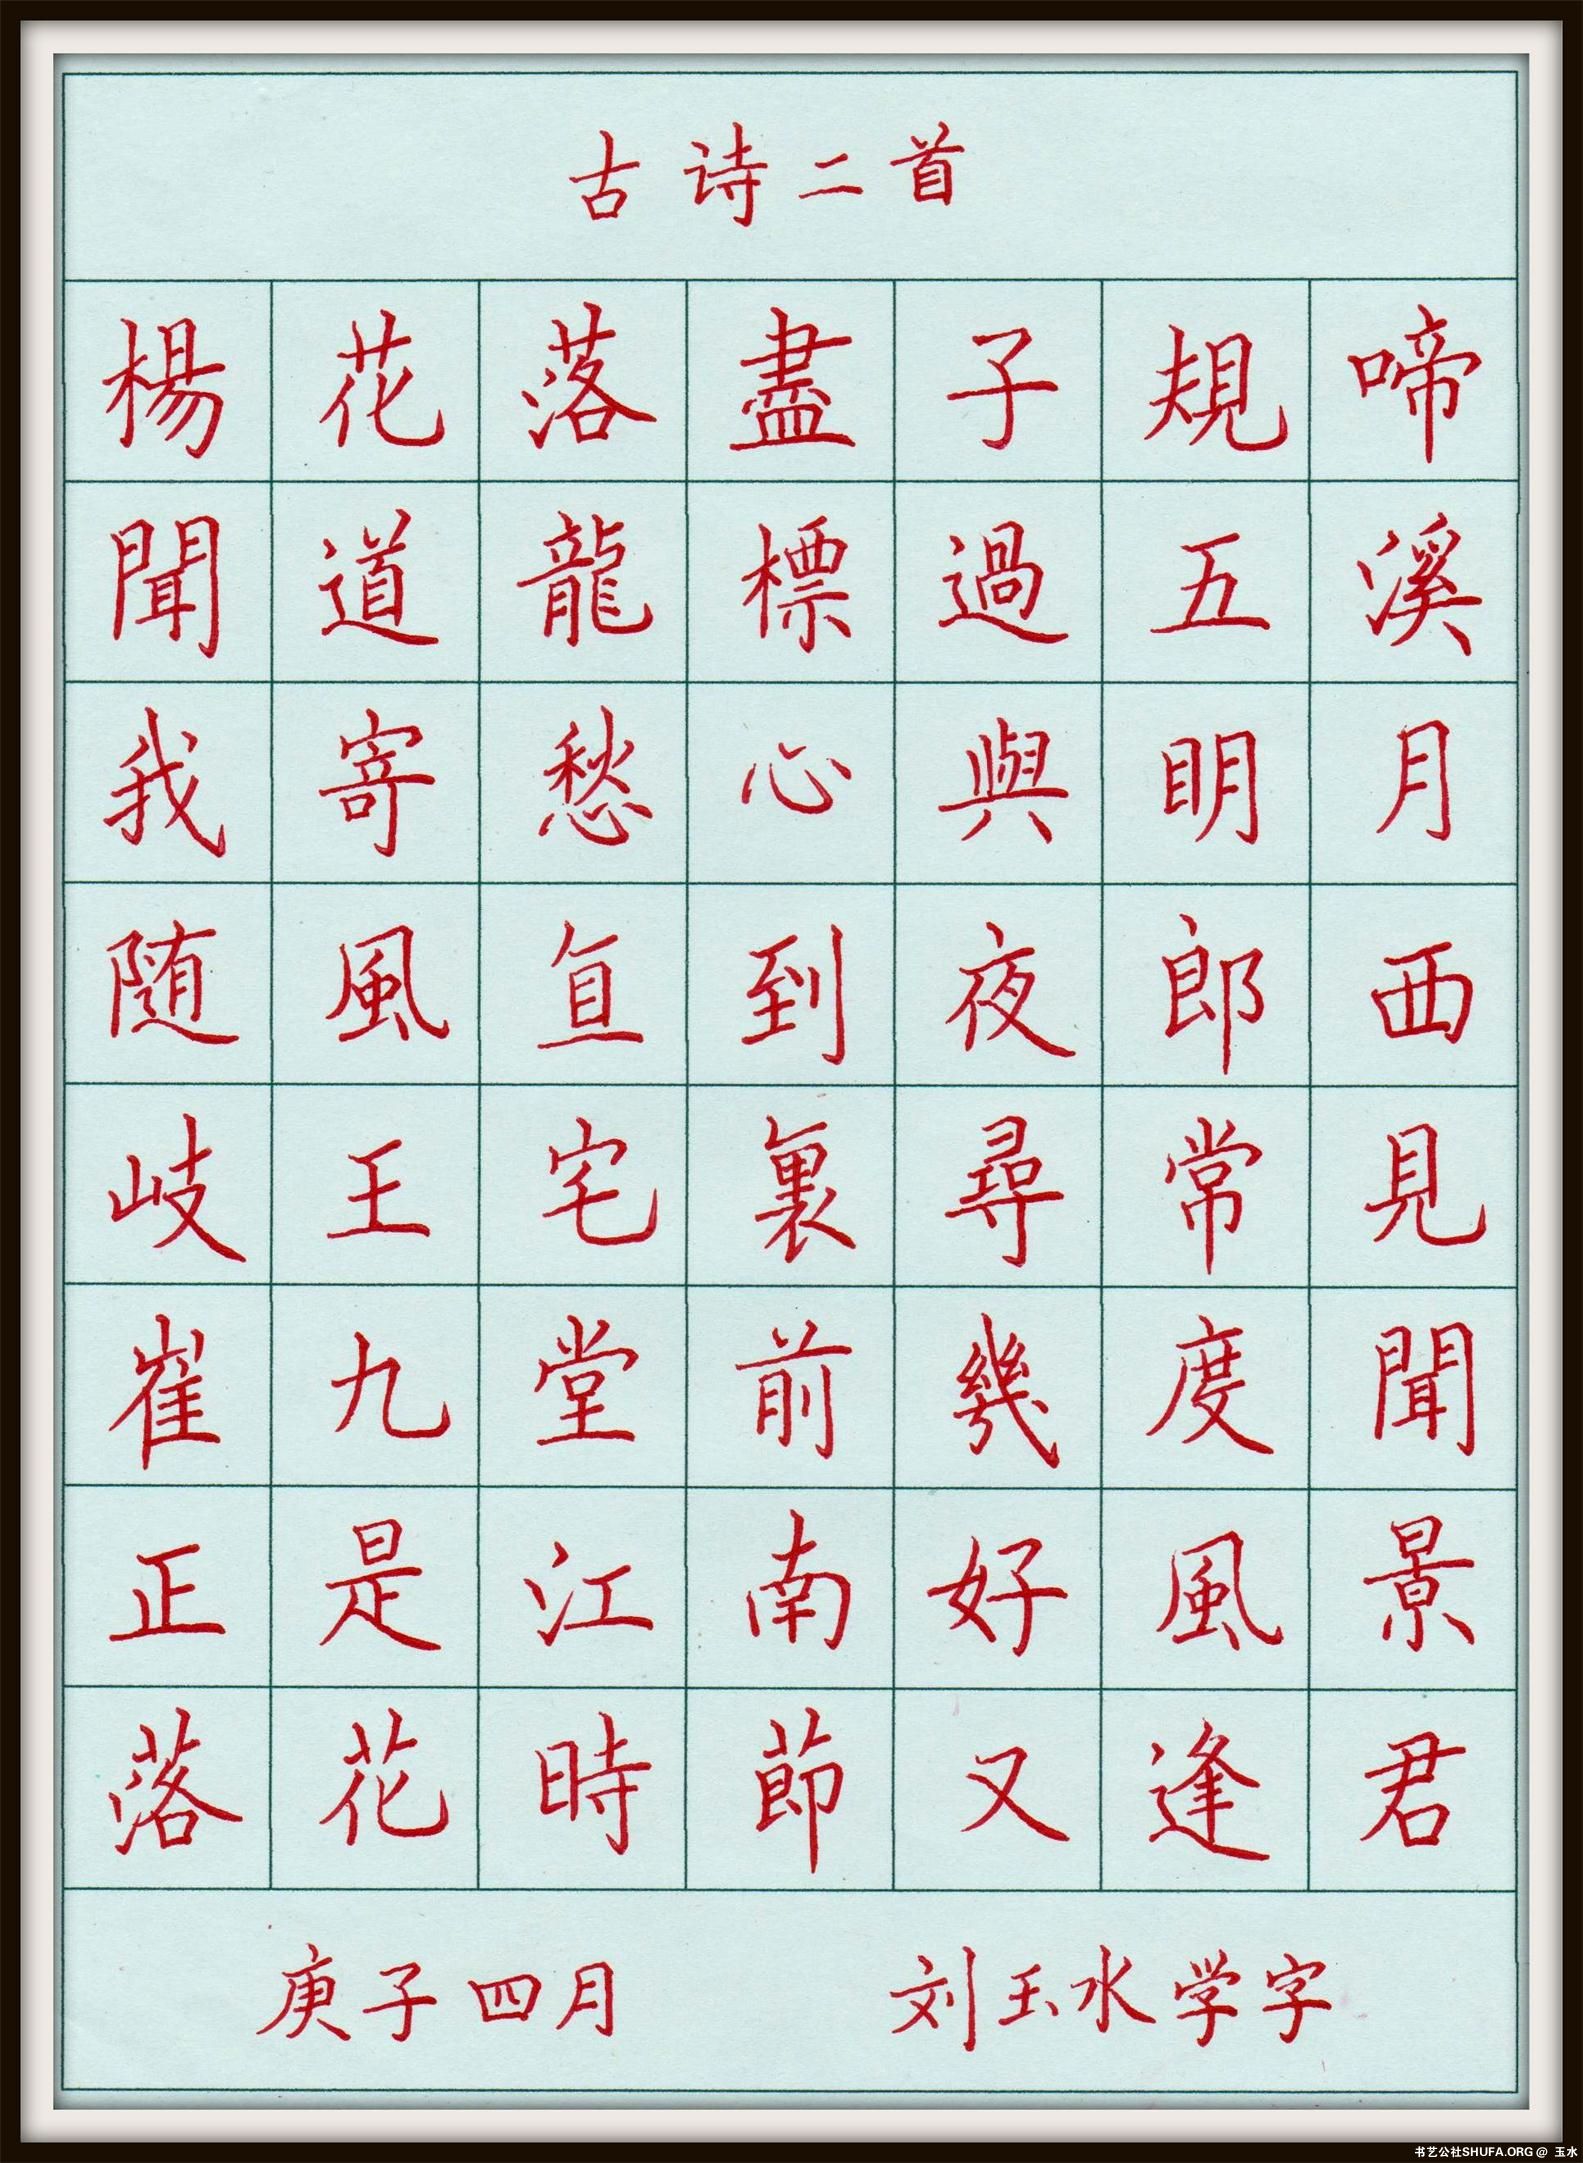 古诗二首
楊花落盡子規啼
聞道龍標過五溪
我寄愁心與明月
随風直到夜郎西
岐王宅裏尋常見
崔九堂前幾度聞
正是江南好風景
落花時節又逢君
庚子四月 刘玉水学字
书艺公社SHUFA.ORG @ 玉水